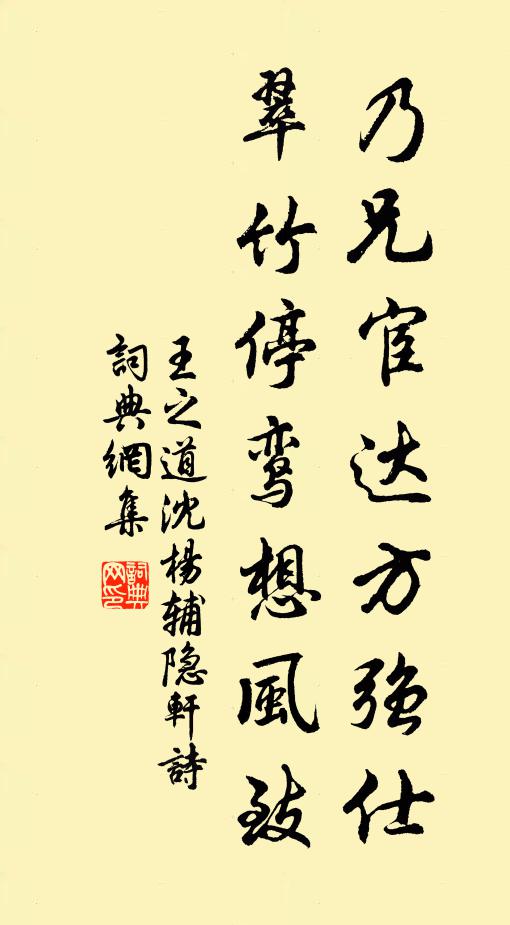 乃兄宦达方强仕
翠竹停鸾想風致
王之道沈楊辅隐軒詩
詞典網集
詞典
网印